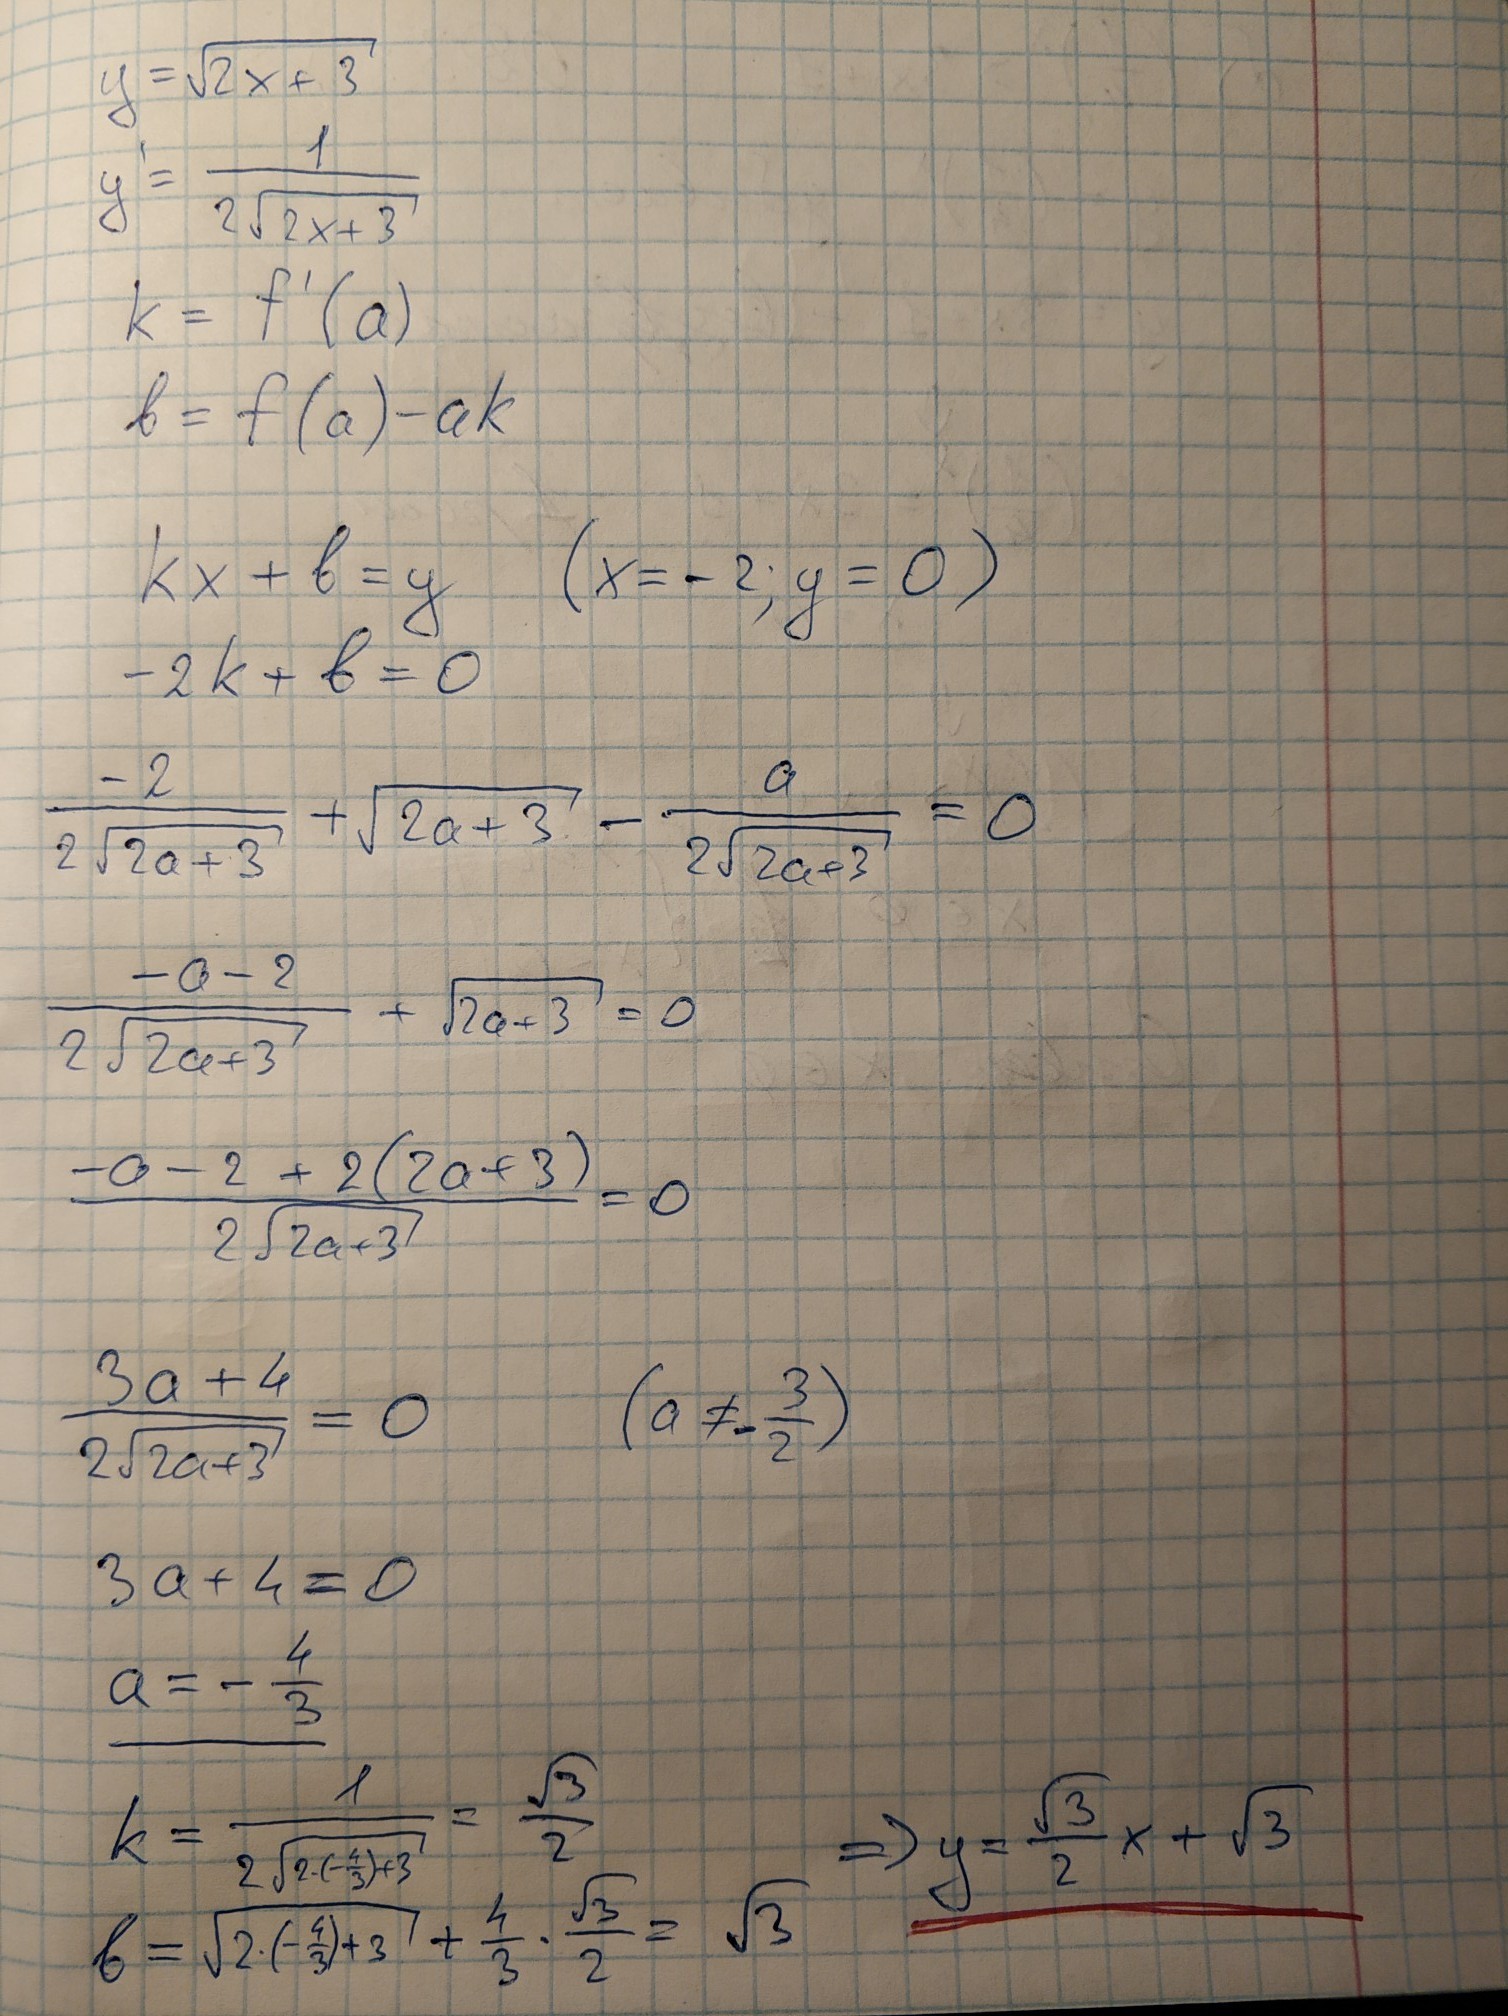 y = √(2x + 3)
y' = 1/(2√(2x+3))
k = f'(a)
b = f(a) - ak
kx + b = y (x = -2; y = 0)
-2k + b = 0
-2/(2√(2a+3)) + √(2a+3) - a/(2√(2a+3)) = 0
(-a-2)/(2√(2a+3)) + √(2a+3) = 0
(-a-2+2(2a+3))/(2√(2a+3)) = 0
(3a+4)/(2√(2a+3)) = 0 (a ≠ -3/2)
3a + 4 = 0
a = -4/3
k = 1/(2√(2·(-4/3)+3)) = √3/2 => y = √3/2 x + √3
b = √(2·(-4/3)+3) + 4/3 · √3/2 = √3